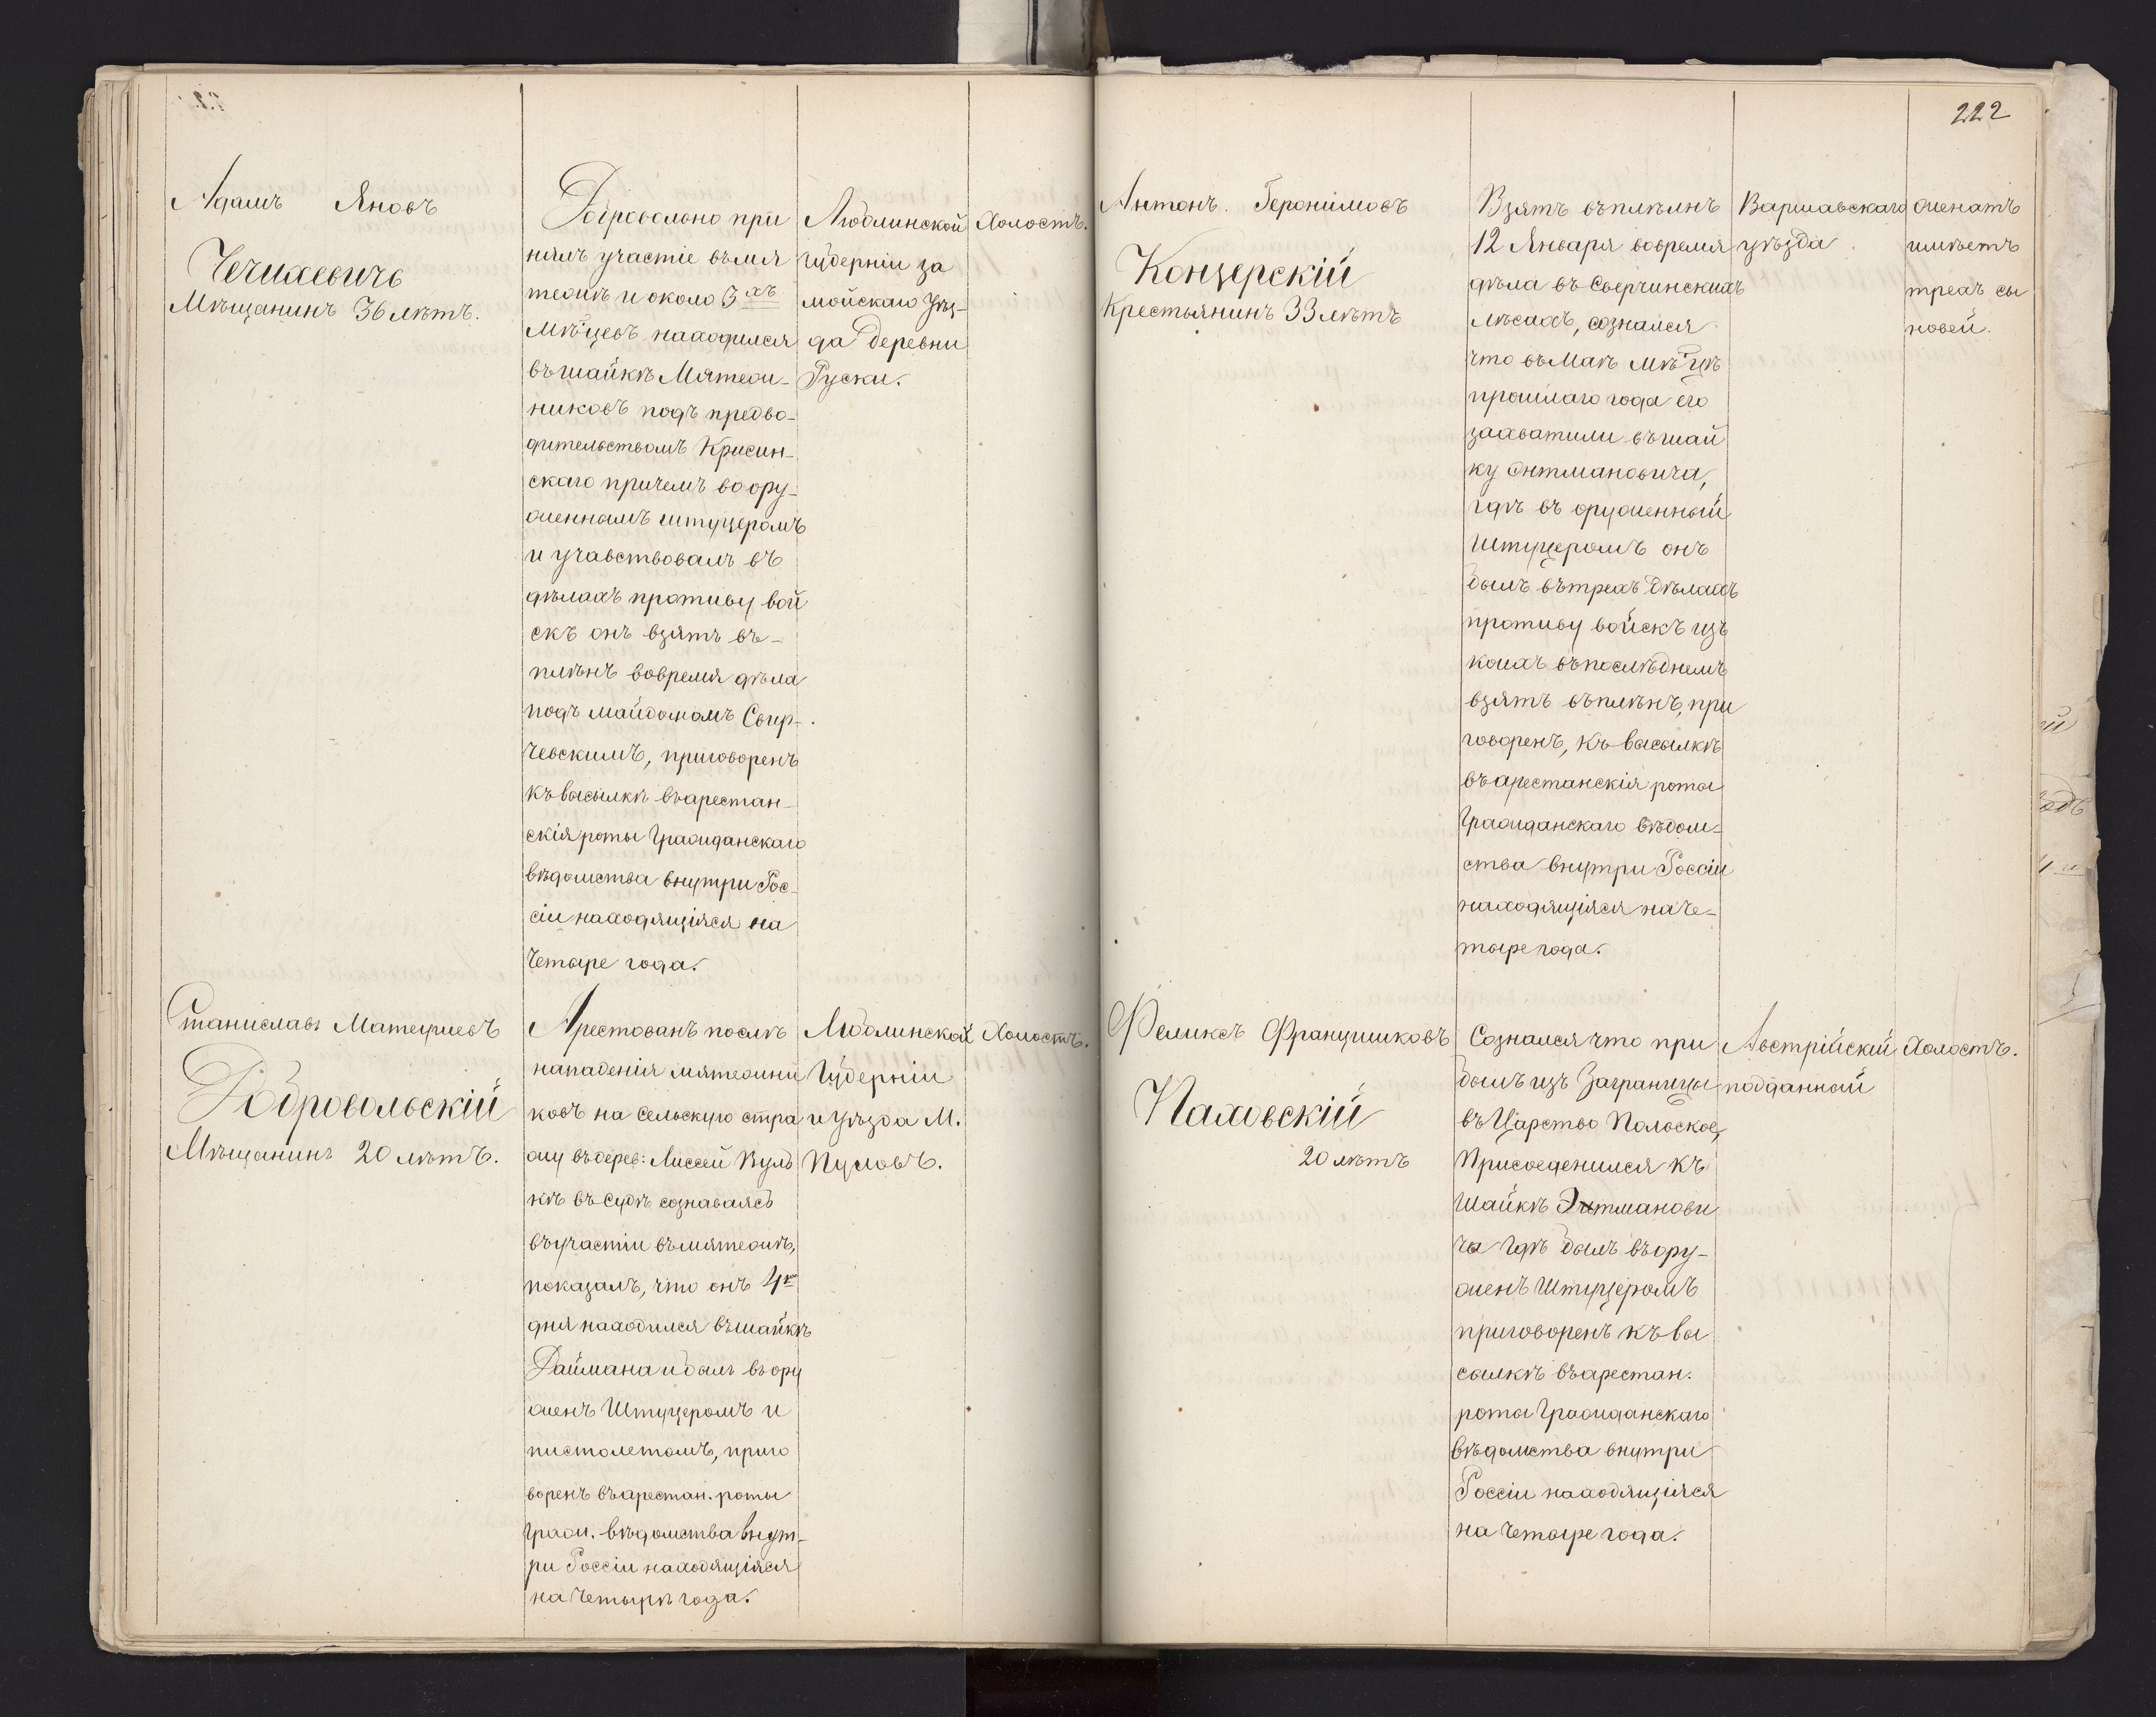 222
Адамъ Яновъ
Чечихевичъ
Мѣщанинъ 36 лѣтъ.
Добровольно при
нялъ участіе въ мя
тежѣ и около 3хъ
мѣ-цевъ находился
въ шайкѣ Мятеж-
никовъ подъ предво-
дительствомъ Крисин-
скаго причемъ воору-
женнамъ штуцеромъ
и учавствовалъ въ
дѣлахъ противу вой
скъ онъ взятъ въ-
плѣнъ вовремя дѣла
подъ майдономъ Свир-
чевскимъ, приговоренъ
къ высылкѣ въ арестан-
скія роты Гражданскаго
вѣдомства внутри Рос-
сіи находящіяся на
Четыре года.
Люблинской
Губерніи за
мойскаго Уѣз-
да Деревни
Руски.
Холостъ.
Станиславъ Матеушевъ
Добровольскій
Мѣщанинъ 20 лѣтъ.
Арестованъ послѣ
нападенія мятежни
ковъ на Сельскую стра
жу въ дерев: Лиссей Вуль
кѣ въ Судѣ сознаваясь
въ участіи въ мятежѣ,
показалъ, что онъ 4ре
дня находился въ шайкѣ
Раймана и былъ въору
женъ Штуцеромъ и
пистолетомъ, приго
воренъ въ арестан. роты
Граж. вѣдомства внут-
ри Россіи находящіяся
на Четырѣ года.
Люблинской
Губерніи
и Уѣзда М.
Пуловъ.
Холостъ.
Антонъ. Геронимовъ
Концерскій
Крестьянинъ 33 лѣтъ
Взятъ въ плѣлнъ
12 Января вовремя
дѣла въ Сверчинскихъ
лѣсахъ, сознался
что въ Маѣ мѣ-цѣ
прошлаго года его
захватили въ шай
ку Энтмановича,
гдѣ въ оруженный
Штуцеромъ онъ
былъ въ трехъ Дѣлахъ
противу войскъ изъ
коихъ въ послѣднемъ
взятъ въ плѣнъ, при
говоренъ, къ высылкѣ
въ арестанскія роты
Гражданскаго вѣдом-
ства внутри Россіи
находящіяся на че-
тыре года.
Варшавскаго
уѣзда
женатъ
имѣетъ
трехъ сы
новей.
Феликсъ Францишковъ
Наховскій
20 лѣтъ
Сознался что при
былъ изъ Заграницы
въ Царство Польское,
Присоеденился къ
Шайкѣ Энтманови
ча Гдѣ былъ въору-
женъ Штуцеромъ
приговоренъ къ вы
сылкѣ въ арестан.
роты Гражданскаго
вѣдомства внутри
Россіи находящіяся
на Четыре года.
Австрійскій
подданный
Холостъ.